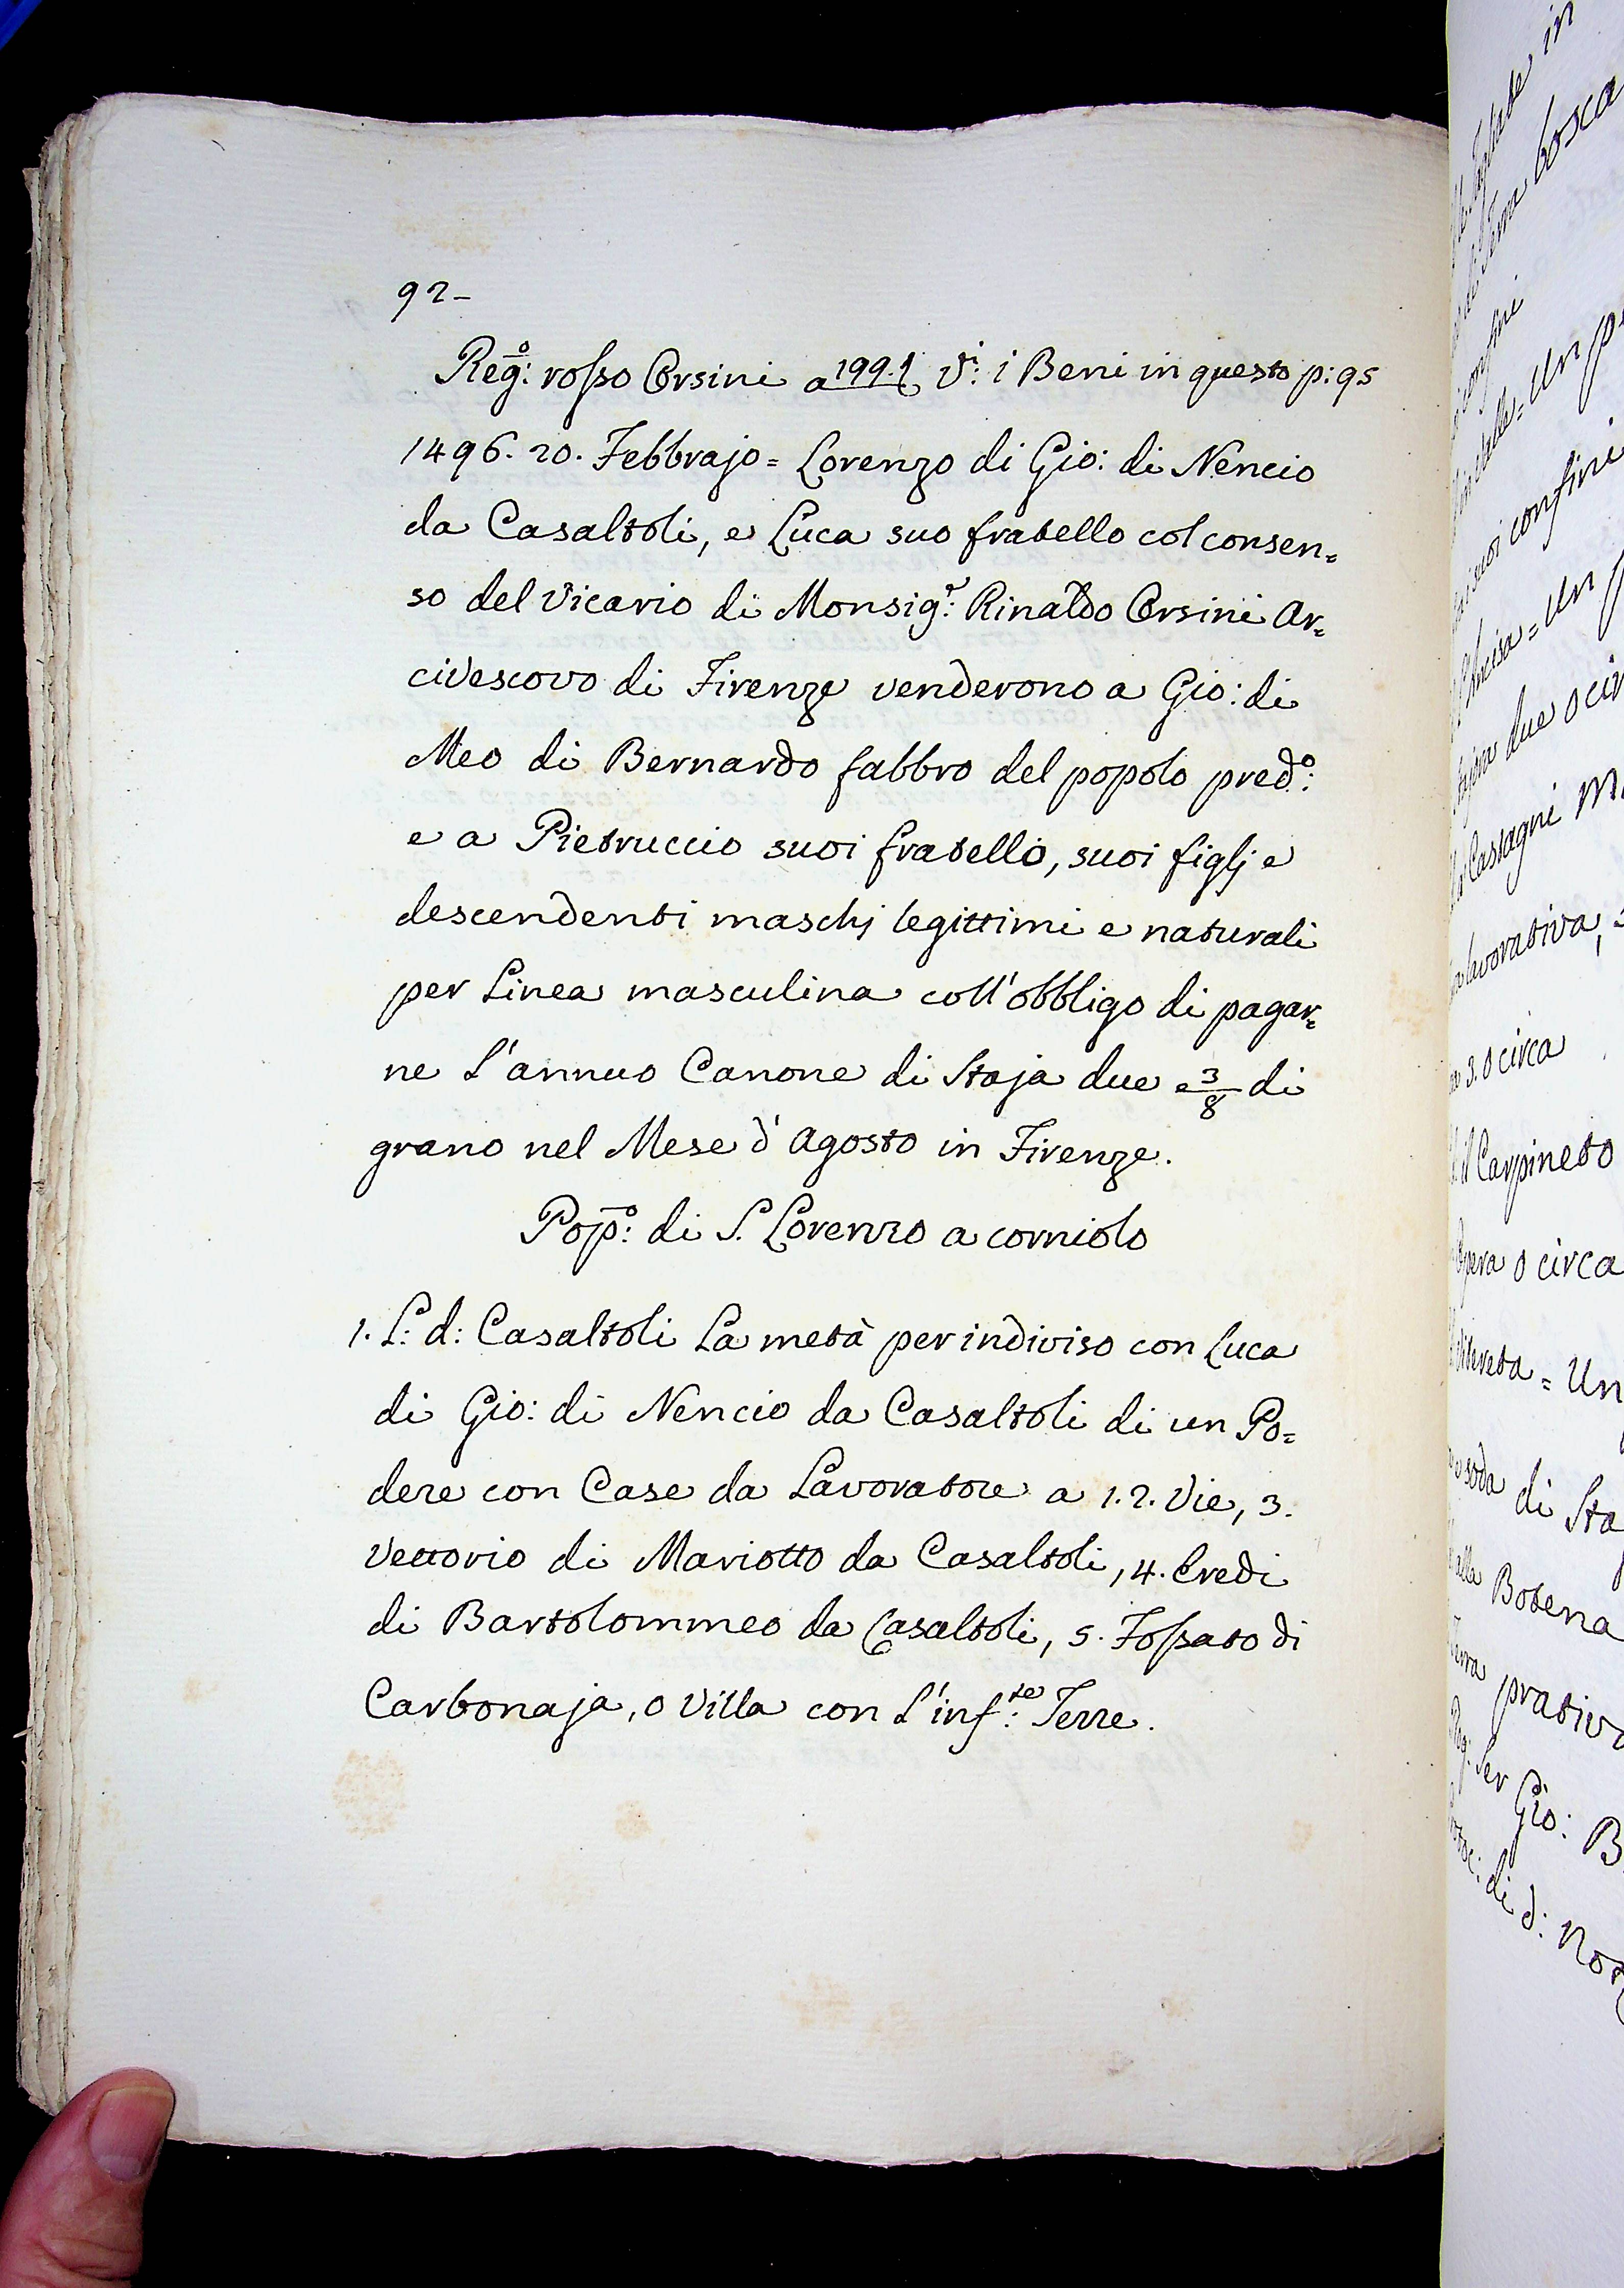 92-
Reg:º rosso Orsini a 199.t V:i i Beni in questo p: 95
1496. 20. Febbrajo = Lorenzo di Gio: di Nencio
da Casaltoli, e Luca suo fratello col consen=
so del Vicario di Monsig:r Rinaldo Orsini Ar=
civescovo di Firenze venderono a Gio: di
Meo di Bernardo fabbro del popolo pred:º
e a Pietruccio suoi fratello, suoi figlj e
descendenti maschj legittimi e naturali
per Linea masculina coll'obbligo di pagar=
ne l'annuo Canone di Staja due e 3/8 di
grano nel Mese d'Agosto in Firenze.
Pop:º di S. Lorenzo a corniolo
1. L: d: Casaltoli La metà per indiviso con Luca
di Gio: di Nencio da Casaltoli di un Po=
dere con Case da Lavoratore a 1. 2. Vie, 3.
Vettorio di Mariotto da Casaltoli, 4. Credi
di Bartolommeo da Casaltoli, 5. Fossato di
Carbonaja, o Villa con l'inf:te Terre.
in
Terra bosca
confini
Un p
suoi confini
Un p
due o cir
Castagni
lavorativa,
3. o circa
il Carpineto
opera o circa
= Un
soda di Sta
alla Botena
Terra prativa
Ser Gio: B
di d: Nor